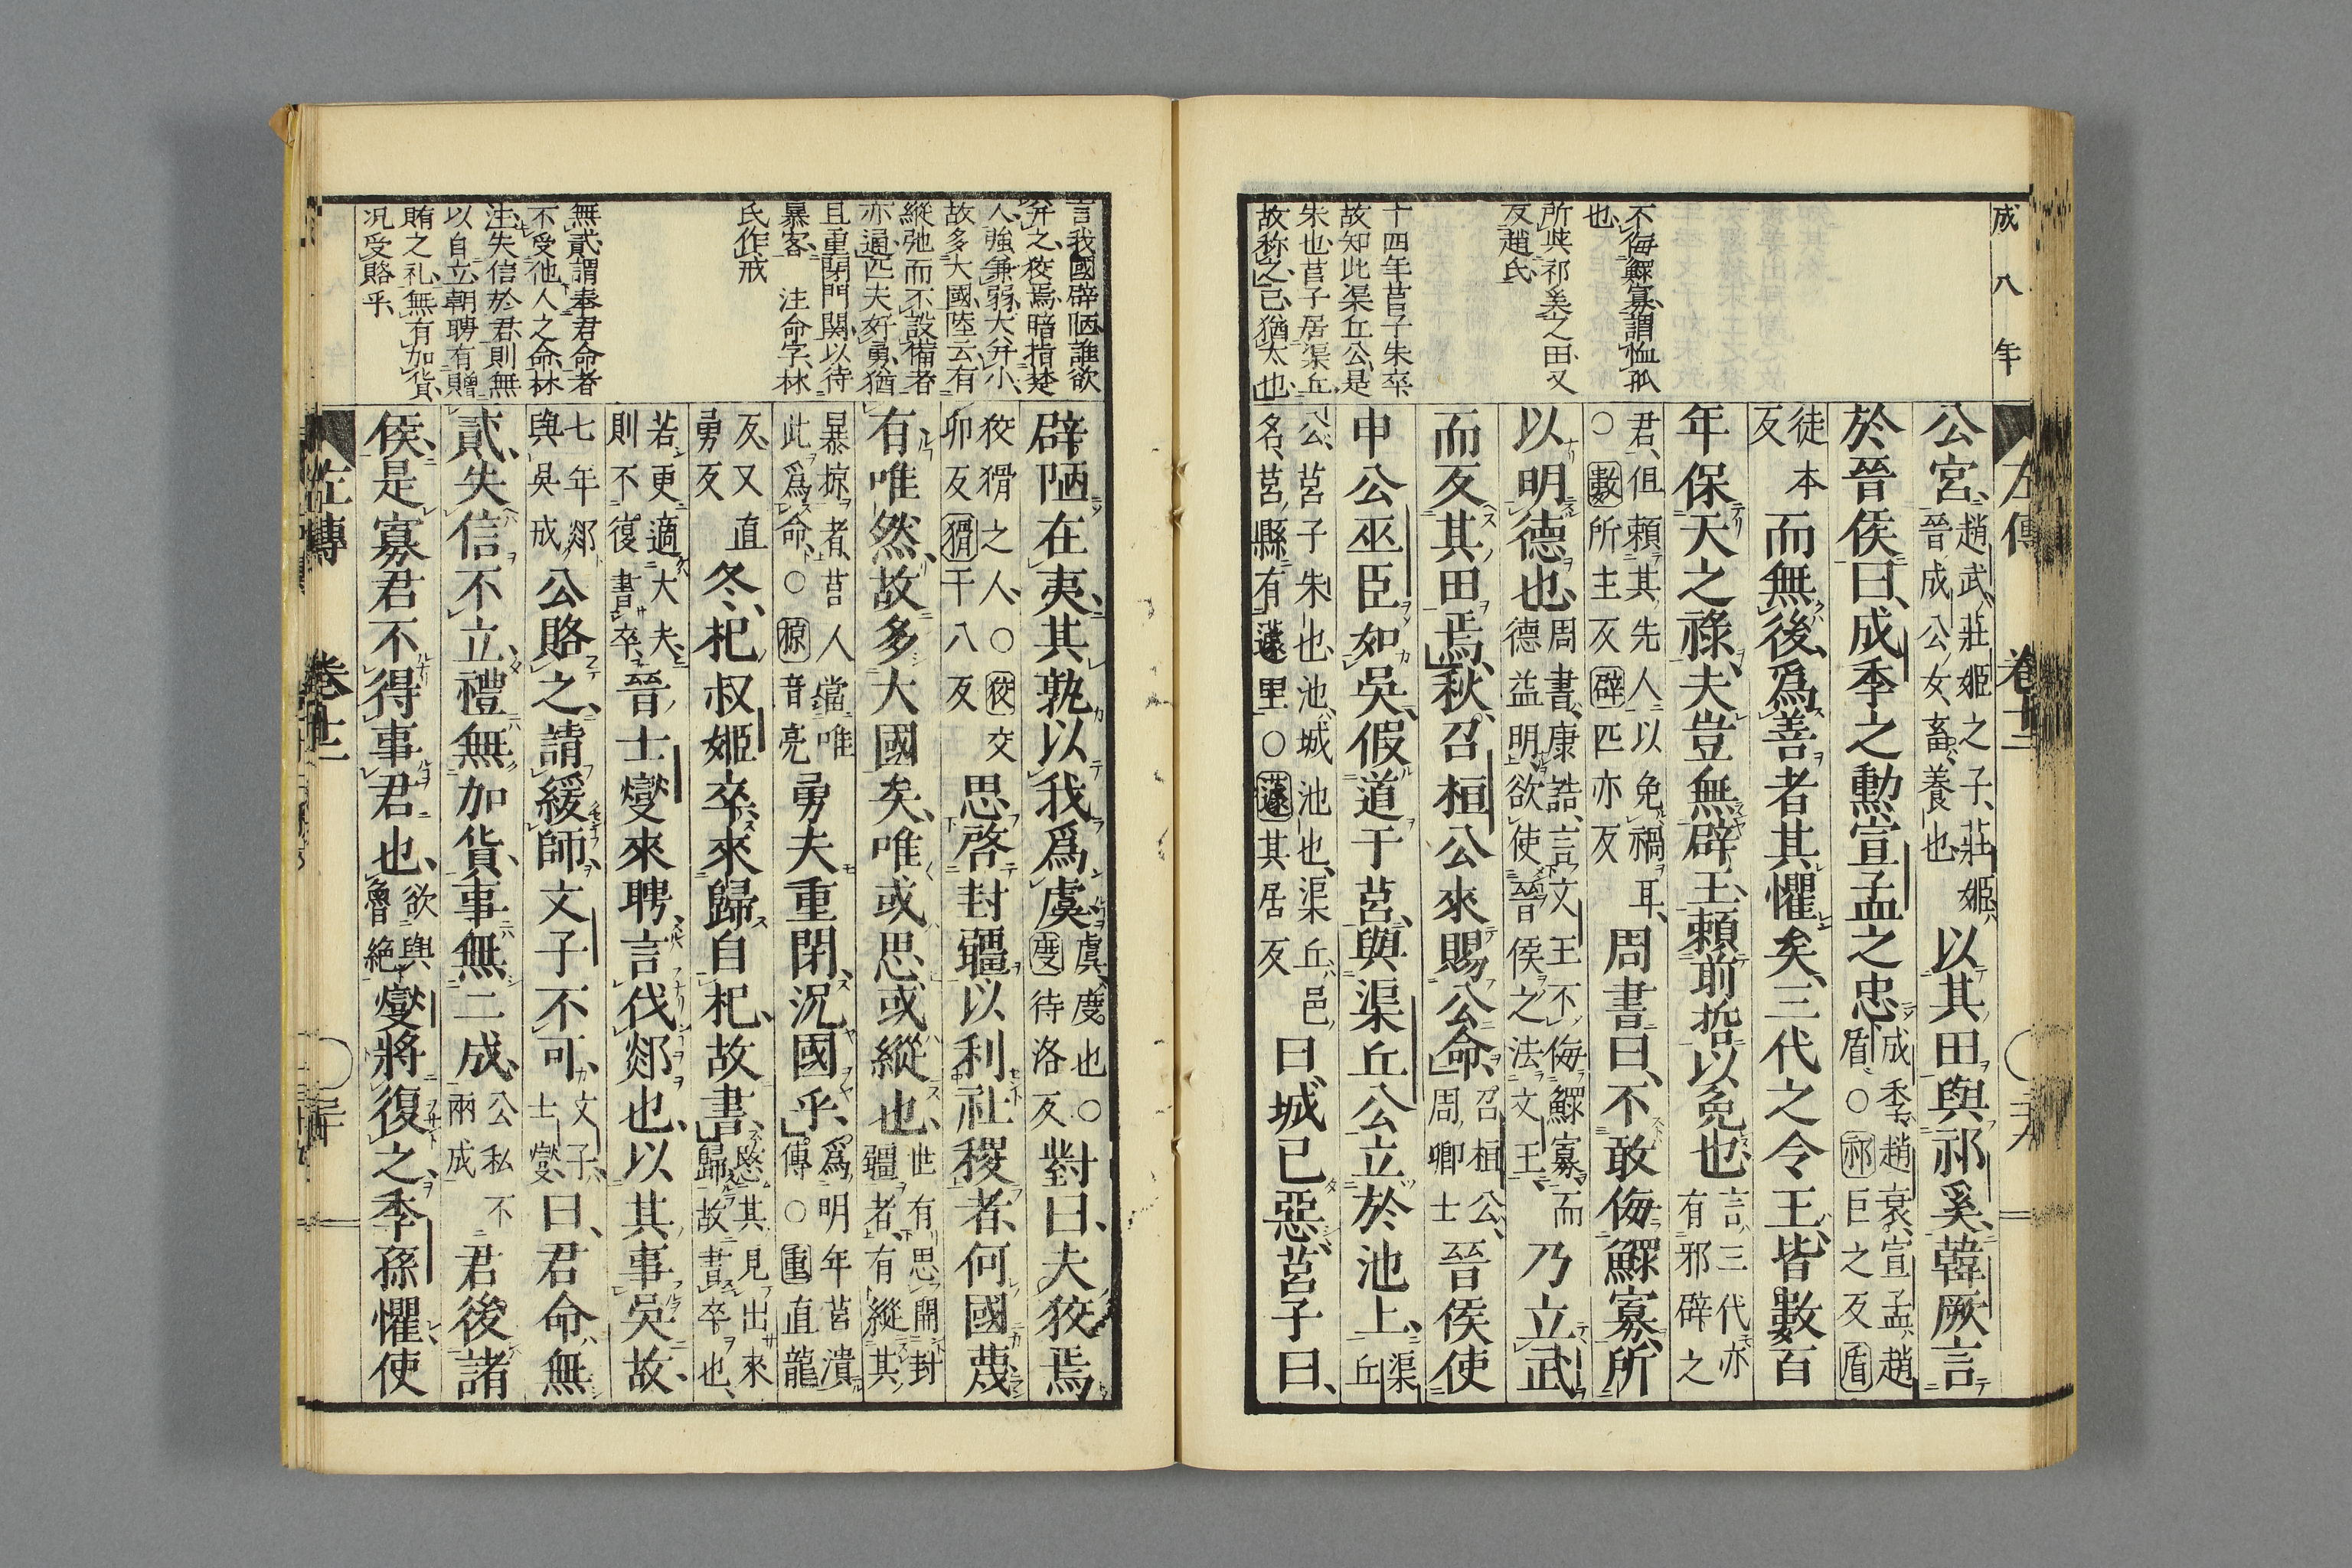 成八年
不侮鰥寡謂恤孤
也
所與祁奚之田又
反趙氏
十四年莒子朱卒
故知此渠丘公是
朱也莒子居渠丘
故称之己猶太也
左傳 卷十二 二十九
公宮趙武莊姬之子莊姬晉成公女畜養也以其田與祁奚韓厥言
於晉侯曰成季之勲宣孟之忠成季趙衰宣孟趙盾○祁巨之反盾
徒本反而無後爲善者其懼矣三代之令王皆數百
年保天之祿夫豈無辟王賴前哲以免也言三代亦有邪辟之
君但賴其先人以免禍耳○數所主反辟匹亦反周書曰不敢侮鰥寡所
以明德也周書康誥言文王不侮鰥寡而德益明欲使晉侯之法文王乃立武
而反其田焉秋召桓公來賜公命召桓公周卿士晉侯使
申公巫臣如吳假道于莒與渠丘公立於池上渠丘
公莒子朱也池城池也渠丘邑名莒縣有蘧里○蘧其居反曰城已惡莒子曰
言我國辟陋誰欲
弁之狡焉暗指楚
人強兼弱大弁小
故多大國陸云有
縱弛而不設備者
亦通匹夫好勇猶
且重閉門関以待
暴客 注命字林
氏作戒
無貳謂奉君命者
不受他人之命林
注失信於君則無
以自立朝聘有贈
賄之礼無有加貨
况受賂乎
辟陋在夷其孰以我爲虞虞度也○度待洛反對曰夫狡焉
狡猾之人○狡交卯反猾干八反思啓封疆以利社稷者何國蔑
有唯然故多大國矣唯或思或縱也世有思開封疆者有縱其
暴掠者莒人當唯此爲命○掠音亮勇夫重閉况國乎爲明年莒潰傳○重直龍
反又直勇反冬杞叔姬卒來歸自杞故書愍其見出來歸故書卒也
若更適大夫則不復書卒晉士燮來聘言伐郯也以其事吳故
七年郯與吳成公賂之請緩師文子不可文子士燮曰君命無
貳失信不立禮無加貨事無二成公私不兩成君後諸
侯是寡君不得事君也欲與魯絶燮將復之季孫懼使
左傳 卷十二 三十